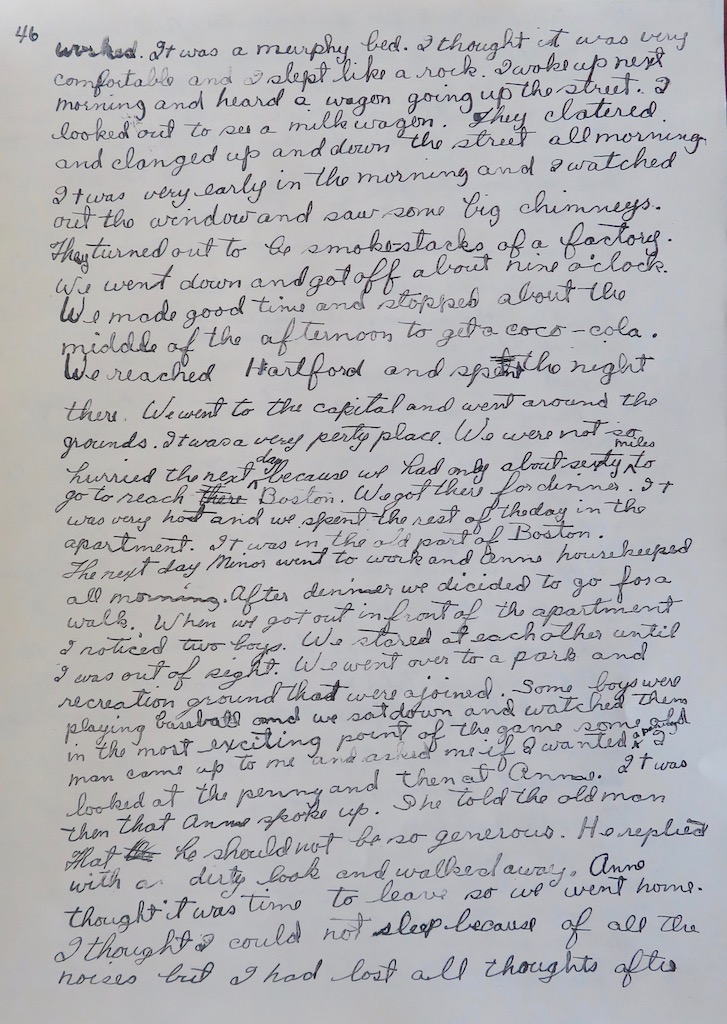 46
worked. It was a murphy bed. I thought it was very
comfortable and I slept like a rock. I woke up next
morning and heard a wagon going up the street. I
looked out to see a milk wagon. They clatered
and clanged up and down the street all morning
It was very early in the morning and I watched
out the window and saw some big chimneys.
They turned out to be smoke-stacks of a factory.
We went down and got off about nine o'clock.
We made good time and stopped about the
middle of the afternoon to get a coco-cola.
We reached Hartford and spent the night
there. We went to the capital and went around the
grounds. It was a very perty place. We were not so
hurried the next day because we had only about sexty miles to
go to reach there Boston. We got there for dinner. It
was very hot and we spent the rest of the day in the
apartment. It was in the old part of Boston.
The next day Minor went to work and Anne housekeeped
all morning. After dinner we dicided to go for a
walk. When we got out in front of the apartment
I noticed two boys. We stared at each other until
I was out of sight. We went over to a park and
recreation ground that were ajoined. Some boys were
playing baseball and we sat down and watched them
in the most exciting point of the game some old
man came up to me and asked me if I wanted a penny. I
looked at the penny and then at Anne. It was
then that Anne spoke up. She told the old man
that he should not be so generous. He replied
with a dirty look and walked away. Anne
thought it was time to leave so we went home.
I thought I could not sleep because of all the
noises but I had lost all thoughts after